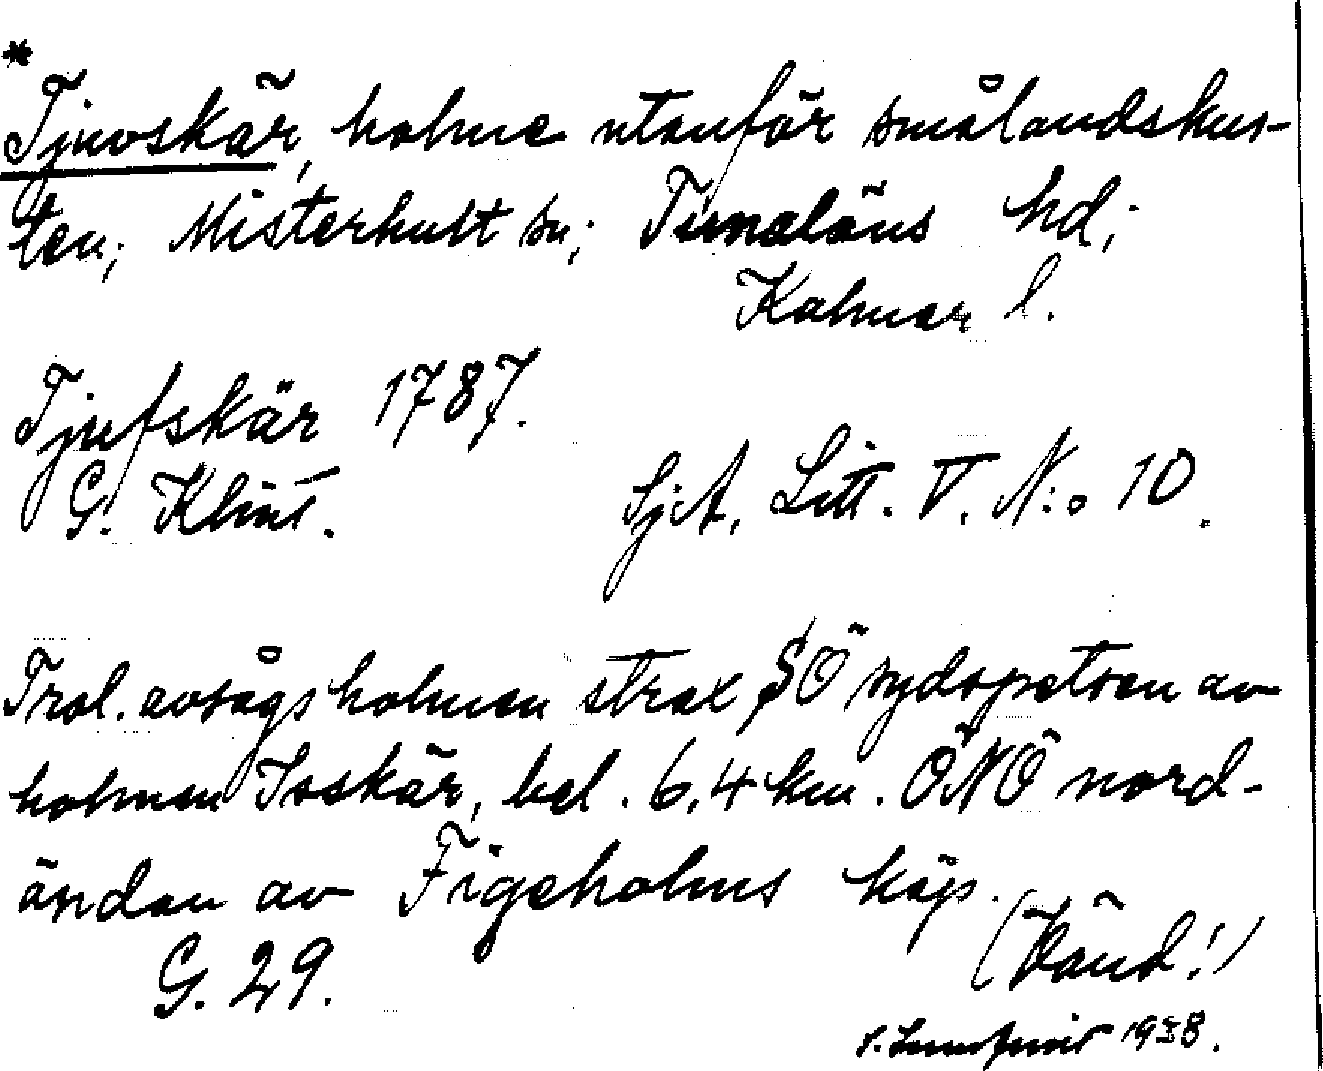 *
Tjuvskär, holme utanför smålandskus-
ten; Misterhult sn; Tunaläns hd;
Kalmar l.
Tjufskär 1787.
G. Klint. SjA, Litt. V. N:o 10.
Trol. avsågs holmen strax SÖ sydspetsen av
holmen Isskär, bel. 6,4 km. ÖNÖ nord-
ändan av Figeholms köp.
(Vänd!)
G. 29.
1938.